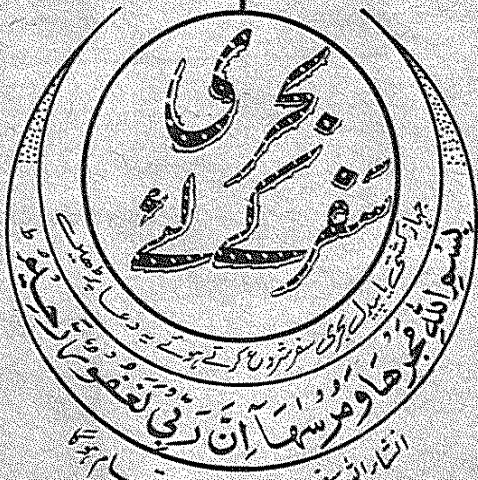 بحری
سفر کے لئے
جہاز کشتی یا پیدل بحری سفر شروع کرتے ہوئے یہ دعا پڑھیں
بِسْمِ اللّٰهِ مَجْرٖهَا وَمُرْسٰهَآ اِنَّ رَبِّیْ لَغَفُوْرٌ رَّحِیْمٌ ط